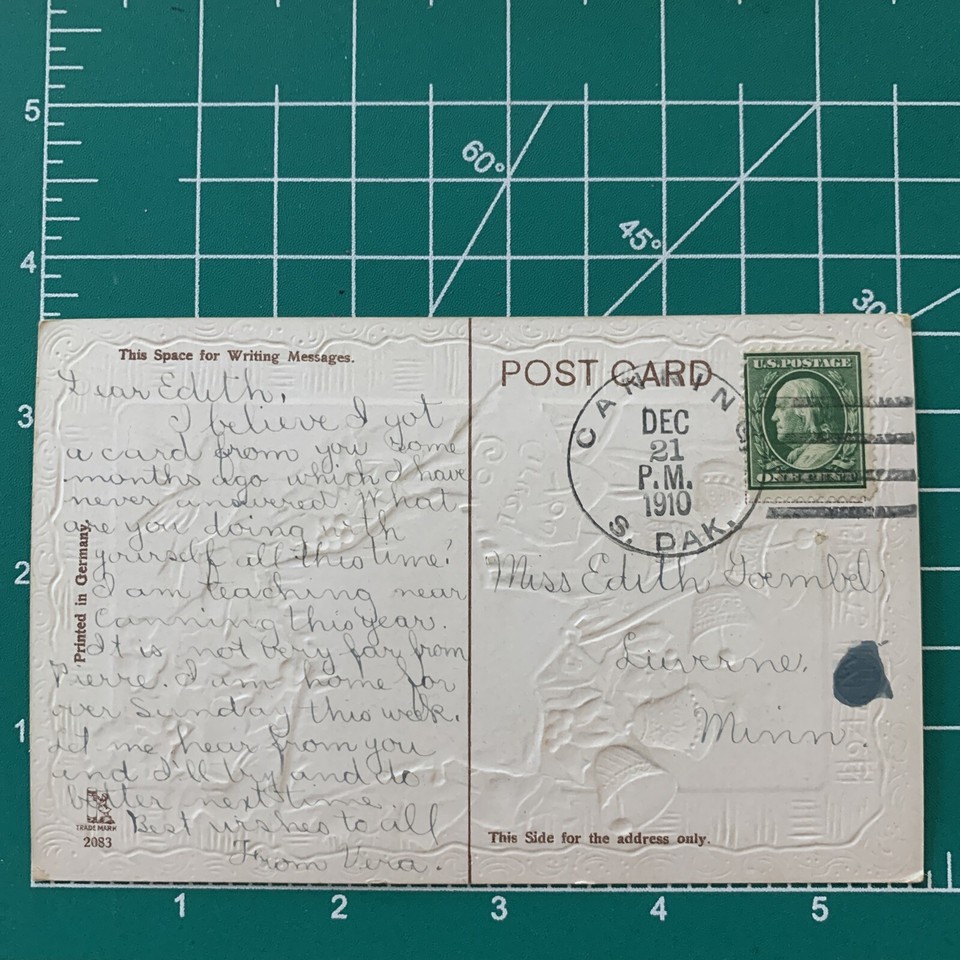 5
60°
45°
4
30°
This Space for Writing Messages.
Dear Edith,
I believe I got
a card from you some
months ago which I have
never answered. What
are you doing with
yourself all this time?
I am teaching near
Canning this year.
It is not very far from
Pierre. I am home for
over Sunday this week.
Let me hear from you
and I'll try and do
better next time.
Best wishes to all
From Vera.
Printed in Germany.
TRADE MARK
2083
POST CARD
CANNING
DEC
21
P.M.
1910
S. DAK.
U.S. POSTAGE
ONE CENT
Miss Edith
Luverne,
Minn.
This Side for the address only.
3
2
1
1
2
3
4
5